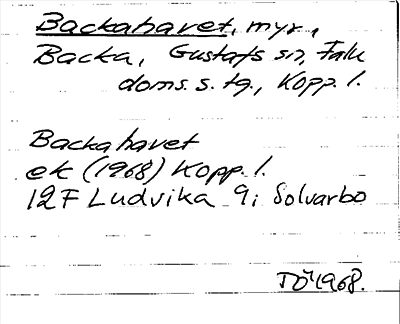 Backahavet, myr,
Backa, Gustafs sn, Falu
doms. s. tg., Kopp. l.
Backahavet
ek (1968) Kopp. l.
12F Ludvika 9i Solvarbo
TÖ 1968.